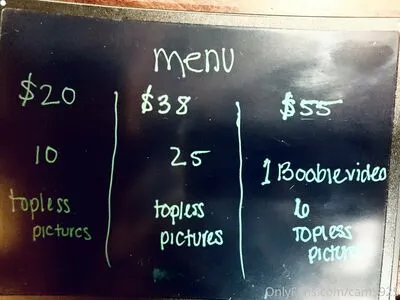 menu
$20
10
topless
pictures
$38
25
topless
pictures
$55
1 Boobie video
6
TOPLESS
pictures